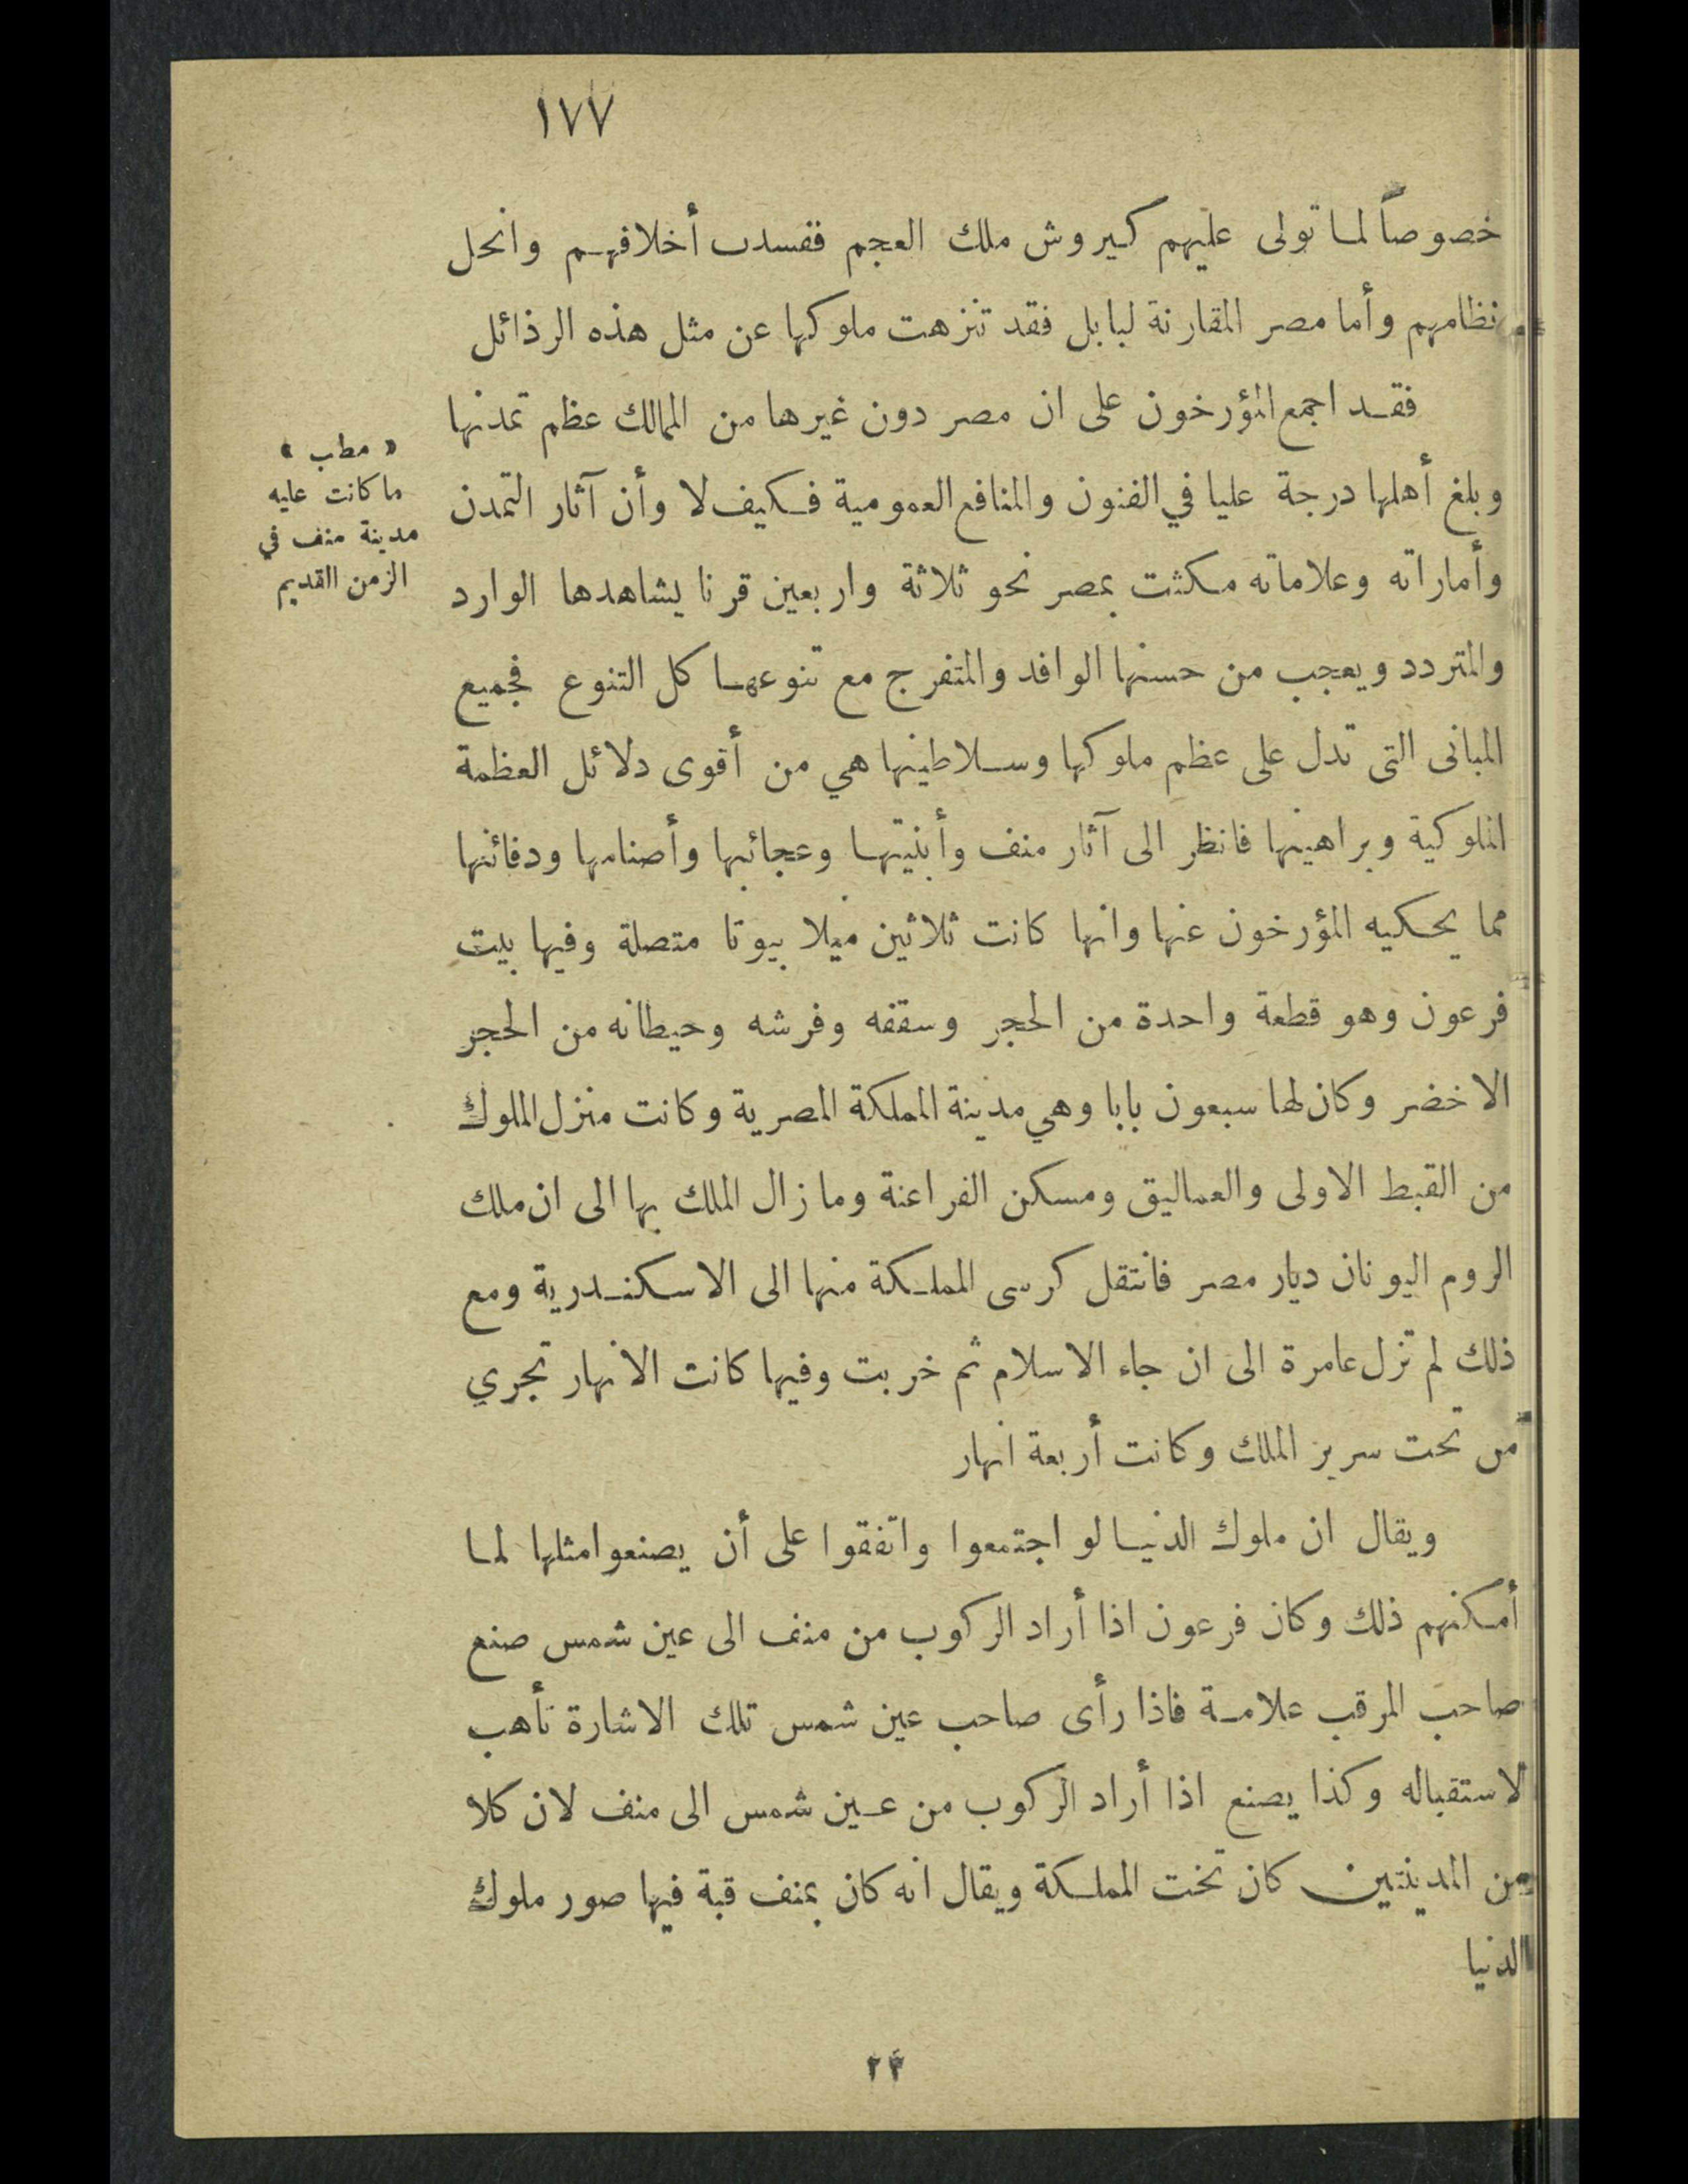 ١٧٧
خصوصاً لما تولى عليهم كيروش ملك العجم ففسدت أخلاقهم وانحل
نظامهم وأما مصر المقارنة لبابل فقد تنزهت ملوكها عن مثل هذه الرذائل
فقد اجمع المؤرخون على ان مصر دون غيرها من الممالك عظم تمدنها
وبلغ أهلها درجة عليا في الفنون والمنافع العمومية فكيف لا وأن آثار التمدن
وأماراته وعلاماته مكثت بمصر نحو ثلاثة واربعين قرنا يشاهدها الوارد
والمتردد ويعجب من حسنها الوافد والمتفرج مع تنوعها كل التنوع فجميع
المبانى التى تدل على عظم ملوكها وسلاطينها هي من أقوى دلائل العظمة
الملوكية وبراهينها فانظر الى آثار منف وأبنيتها وعجائبها وأصنامها ودفائنها
مما يحكيه المؤرخون عنها وانها كانت ثلاثين ميلا بيوتا متصلة وفيها بيت
فرعون وهو قطعة واحدة من الحجر وسقفه وفرشه وحيطانه من الحجر
الاخضر وكان لها سبعون بابا وهي مدينة المملكة المصرية وكانت منزل الملوك
من القبط الاولى والعماليق ومسكن الفراعنة وما زال الملك بها الى ان ملك
الروم اليونان ديار مصر فانتقل كرسى المملكة منها الى الاسكندرية ومع
ذلك لم تزل عامرة الى ان جاء الاسلام ثم خربت وفيها كانت الانهار تجري
من تحت سرير الملك وكانت أربعة انهار
ويقال ان ملوك الدنيا لو اجتمعوا واتفقوا على أن يصنعوا مثلها لما
أمكنهم ذلك وكان فرعون اذا أراد الركوب من منف الى عين شمس صنع
صاحب المرقب علامة فاذا رأى صاحب عين شمس تلك الاشارة تأهب
لاستقباله وكذا يصنع اذا أراد الركوب من عين شمس الى منف لان كلا
من المدينتين كان تخت المملكة ويقال انه كان بمنف قبة فيها صور ملوك
الدنيا
« مطب »
ما كانت عليه
مدينة منف في
الزمن القديم
٢٣